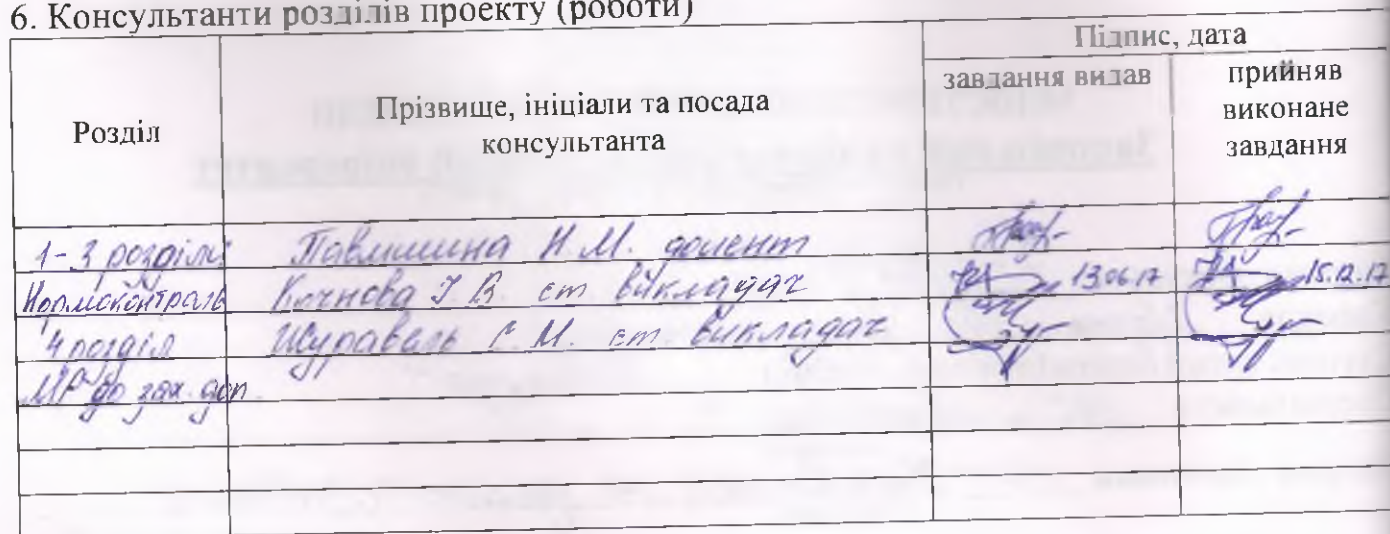 6. Консультанти розділів проекту (роботи)
Розділ
Прізвище, ініціали та посада
консультанта
Підпис, дата
завдання видав
прийняв
виконане
завдання
1-3 розділи Павлишина Н.М. доцент
Нормоконтроль Кочнова І.В. ст викладач 13.06.17 15.12.17
4 розділ Журавель С.М. ст викладач
МР до зах. доп.